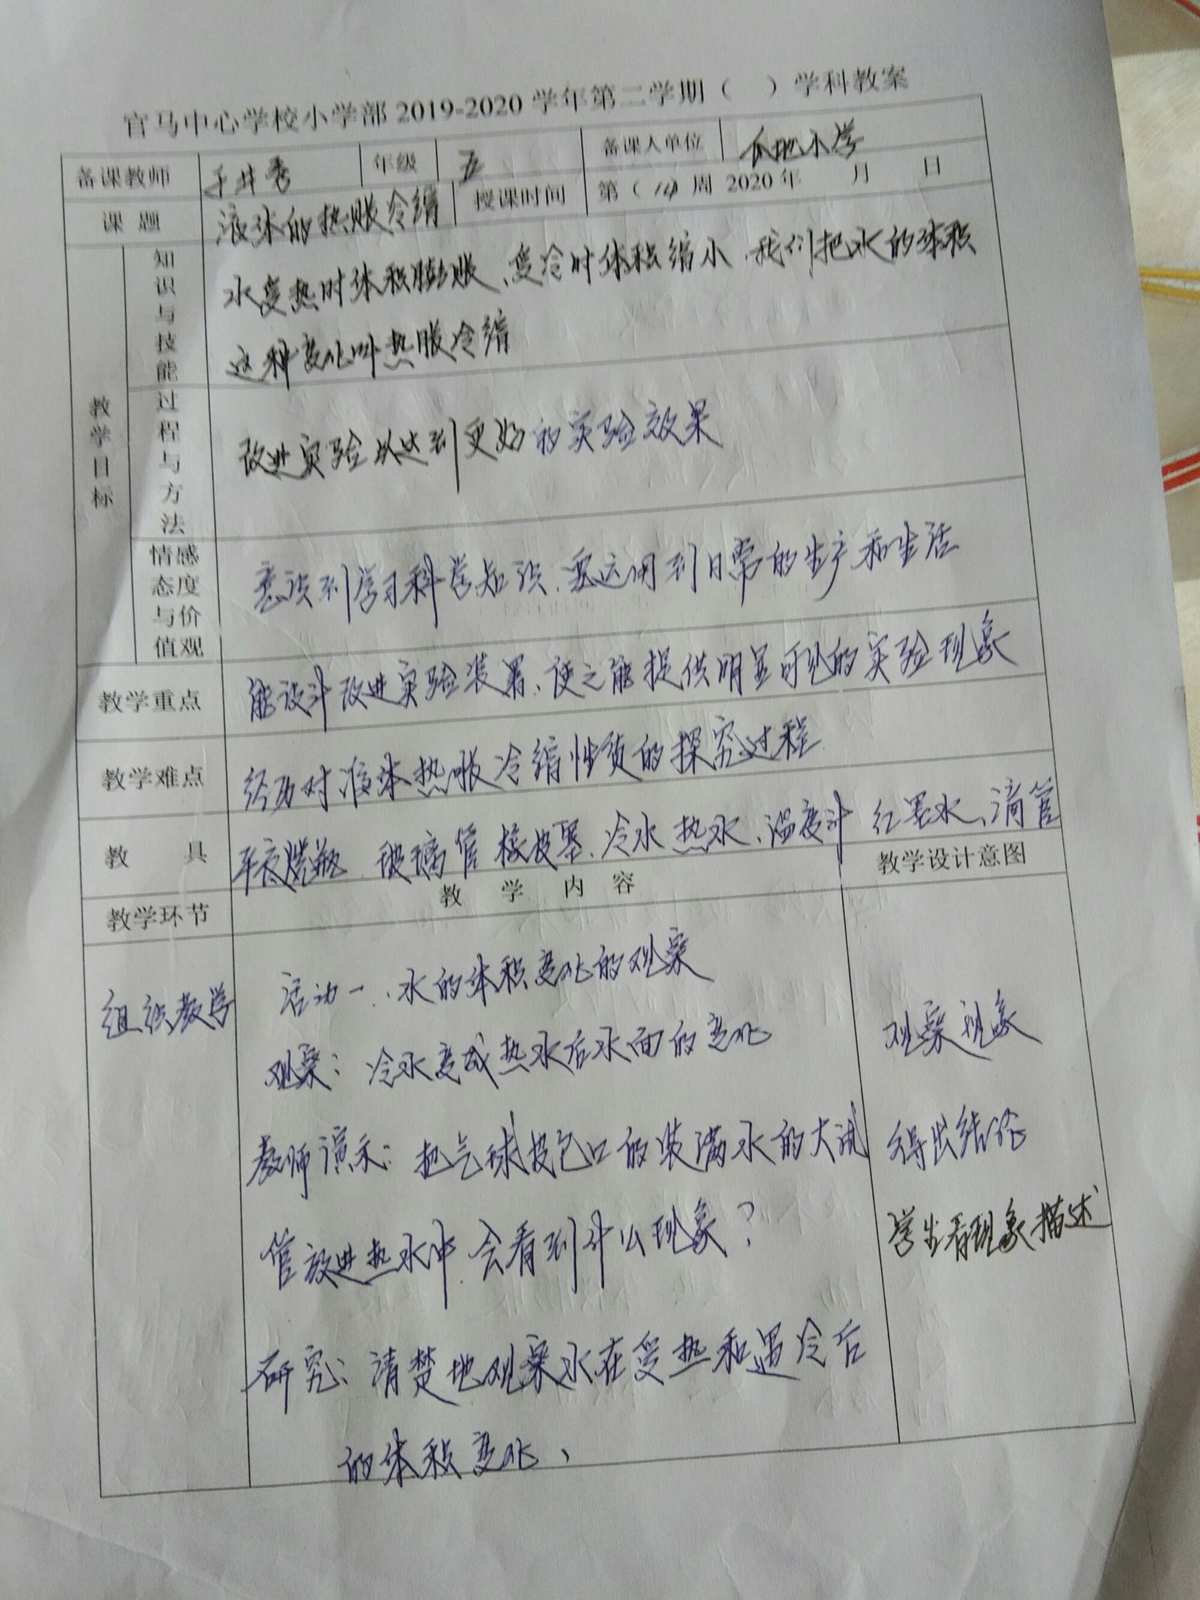 官马中心学校小学部 2019-2020 学年第二学期（ ）学科教案
备课教师 年级 五 备课人单位 小学
课题 液体的热胀冷缩 授课时间 第（ 周 2020 年 月 日
教学目标
知识与技能
水变热时体积膨胀、变冷时体积缩小、我们把水的体积
这种变化叫热胀冷缩
过程与方法
改进实验以达到更好的实验效果
情感态度与价值观
意识到学习科学知识、要运用到日常的生产和生活
教学重点 能设计改进实验装置、使之能提供明显可见的实验现象
教学难点 经历对液体热胀冷缩性质的探究过程
教 具 平底烧瓶 玻璃管 橡皮塞、冷水 热水、温度计 红墨水、滴管
教学环节 教 学 内 容 教学设计意图
组织教学 活动一、水的体积变化的观察
观察：冷水变成热水后水面的变化 观察现象
教师演示：把气球皮包口的装满水的大试 得出结论
管放进热水中 会看到什么现象？ 学生看现象描述
研究：清楚地观察水在受热和遇冷后
的体积变化、